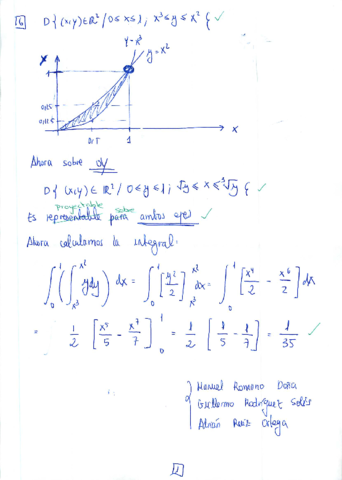 6 D{(x,y)∈R²/0≤x≤1, x³≤y≤x²{ ✓
y=x³
y=x²
x
1
0,25
0,125
0,5 1 x
Ahora sobre dy
D{(x,y)∈ R²/ 0≤y≤1; √y ≤ x ≤ ³√y { ✓
proyectable sobre
Es representable para ambos ejes ✓
Ahora calculamos la integral:
∫₀¹ (∫_{x³}^{x²} y dy) dx = ∫₀¹ [y²/2]_{x³}^{x²} dx = ∫₀¹ [x⁴/2 - x⁶/2] dx
= 1/2 [x⁵/5 - x⁷/7]₀¹ = 1/2 [1/5 - 1/7] = 1/35 ✓
Manuel Romano
Guillermo Rodríguez Solís
Adrián Ruiz Ortega
1